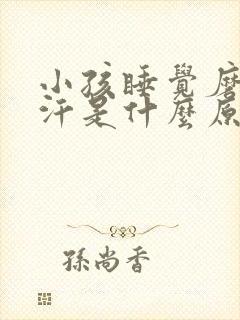 小孩睡覺
汗是什麼原
孫尚香